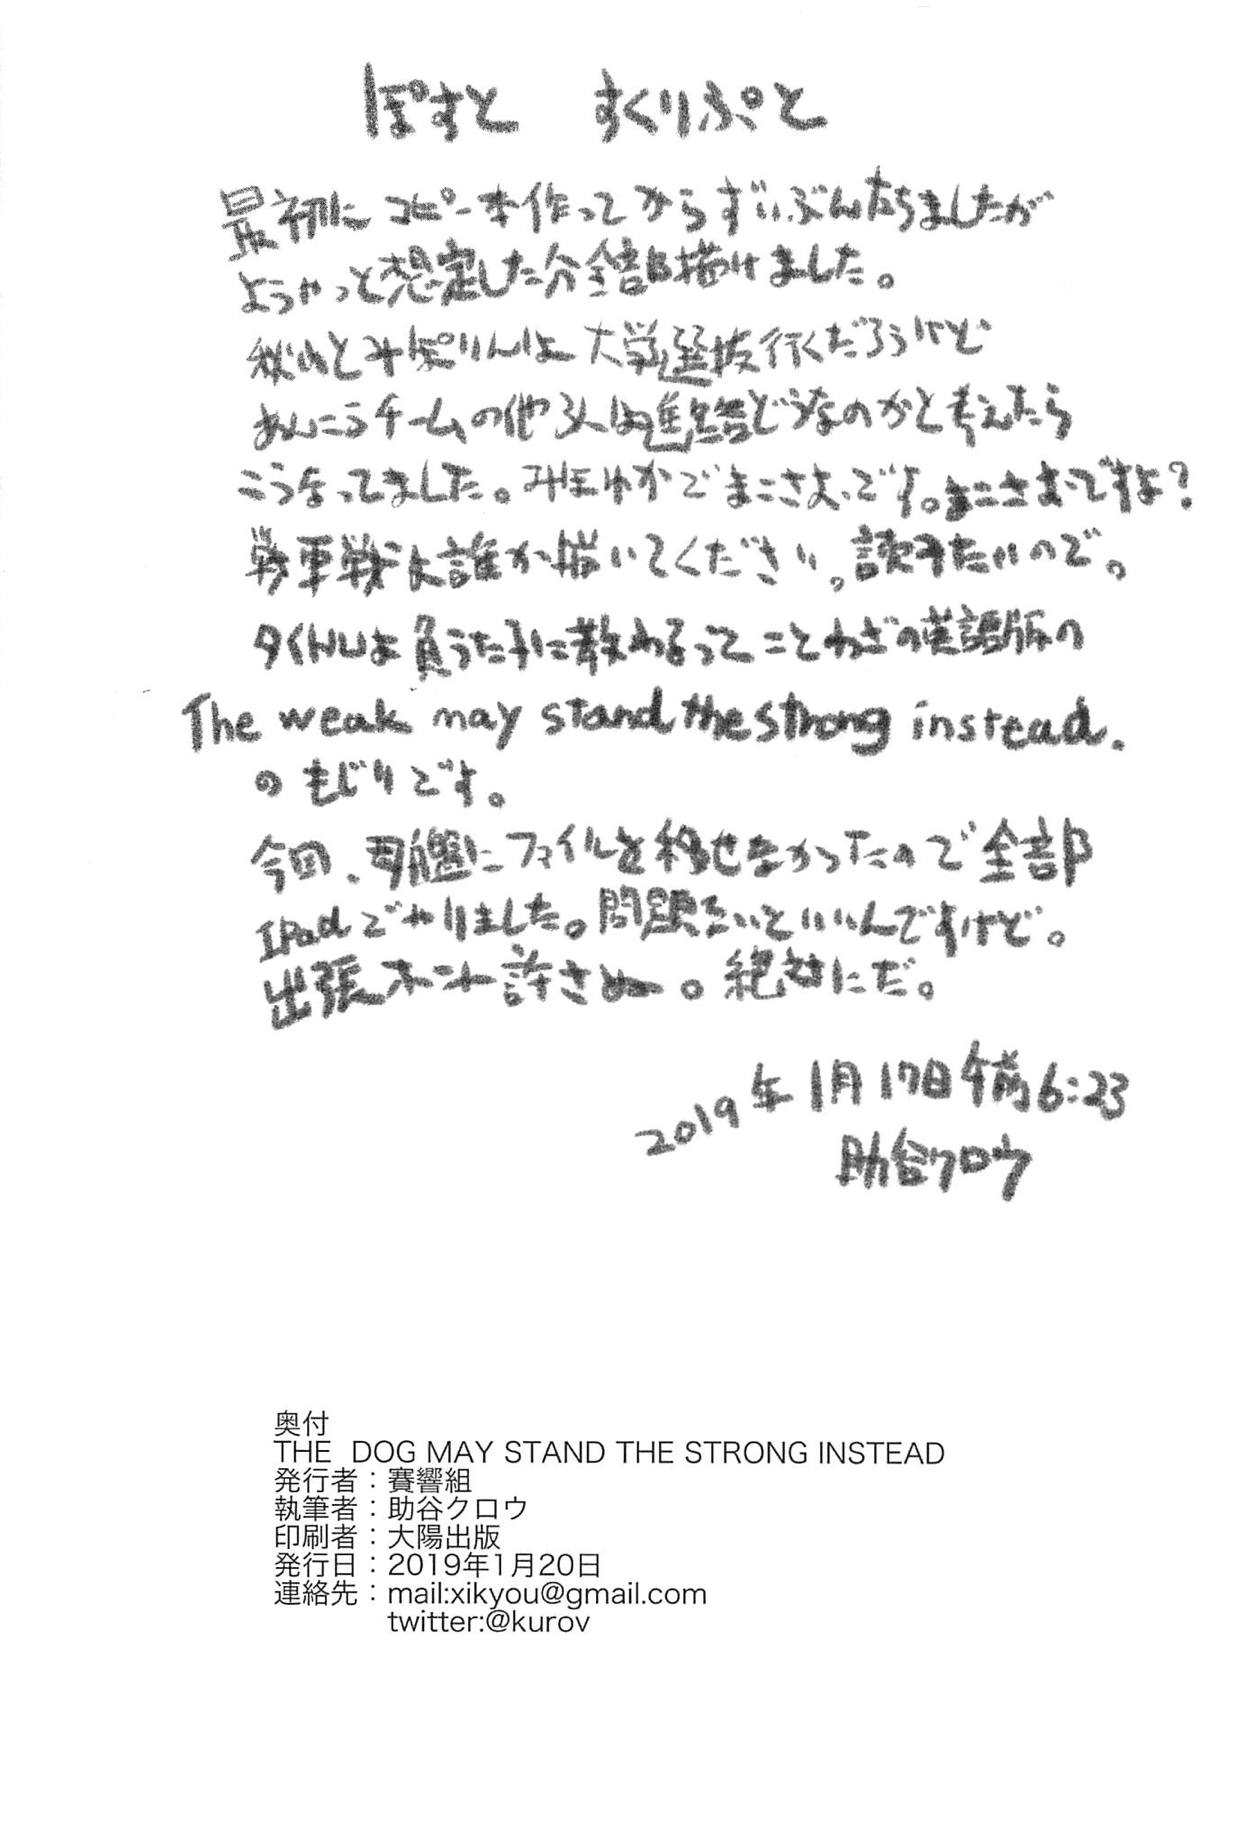 ぽすと　すくりぷと
最初にコピー本作ってからずいぶんたちましたが
ようやっと想定した分全部描けました。
秋山とみぽりんは大学選抜行くだろうけど
あんこうチームの他3人は進路どうなのかと考えたら
こうなってました。みほゆかでまこさおです。まこさおですよ?
戦車戦は誰か描いてください。読みたいので。
タイトルは負うた子に教わるってことわざの英語版の
The weak may stand the strong instead.
のもじりです。
今回、母艦にファイルを移せなかったので全部
IPadでやりました。問題ないといいんですけど。
出張ホント許さぬー。絶対にだ。
2019年1月17日午前6:23
助谷クロウ
奥付
THE DOG MAY STAND THE STRONG INSTEAD
発行者：賽響組
執筆者：助谷クロウ
印刷者：大陽出版
発行日：2019年1月20日
連絡先：mail:xikyou@gmail.com
twitter:@kurov